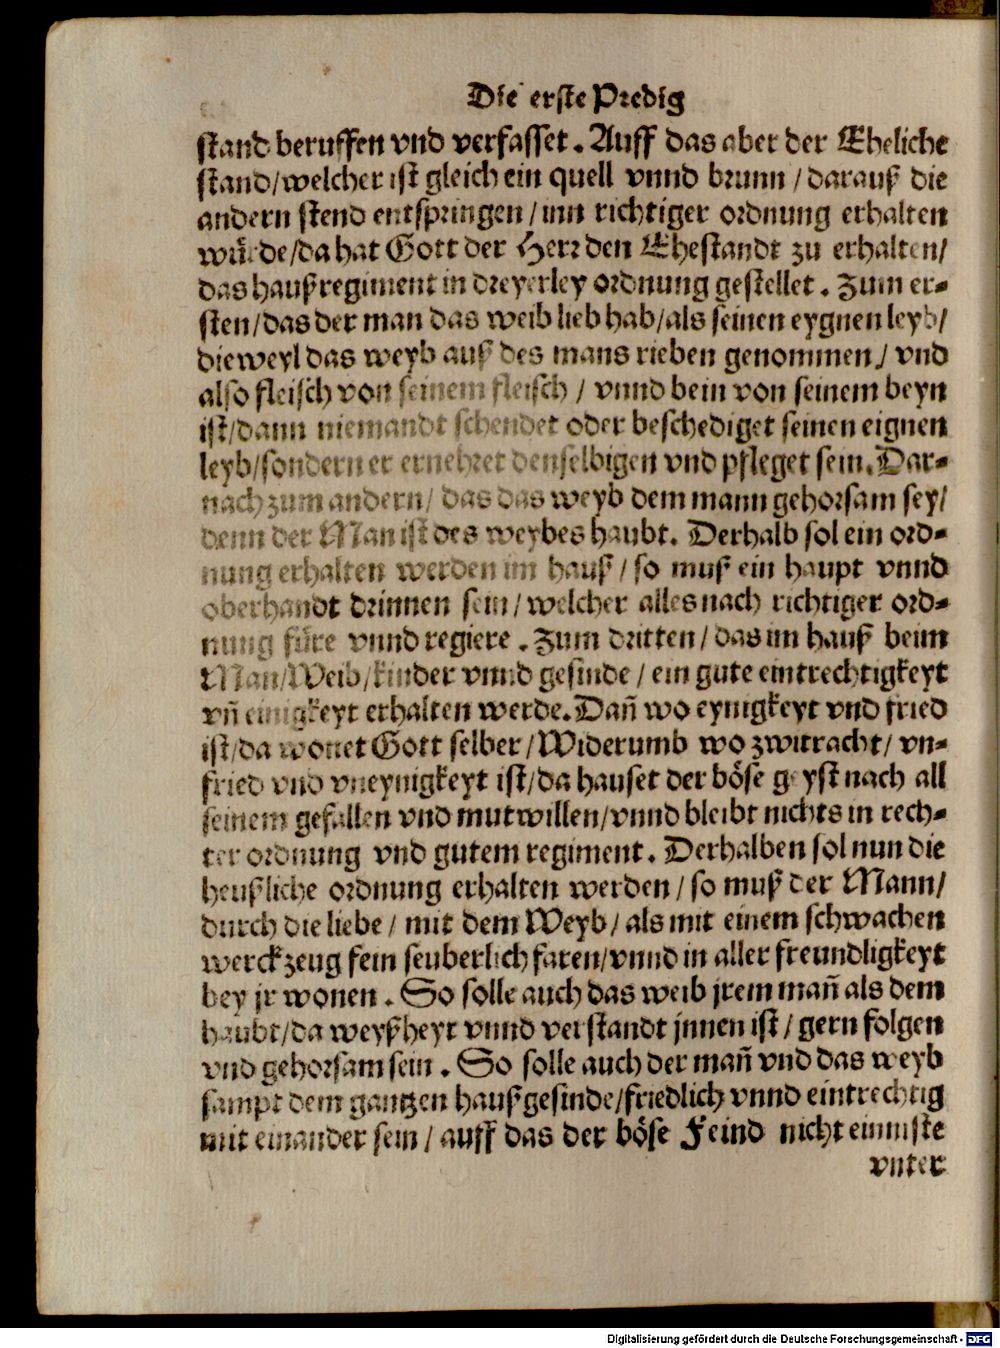 Die erste Predig
stand beruffen vnd verfasset. Auff das aber der Eheliche
stand/welcher ist gleich ein quell vnnd brunn/darauß die
andern stend entspringen/inn richtiger ordnung erhalten
würde/da hat Gott der Herr den Ehestandt zu erhalten/
das haußregiment in dreyerley ordnung gestellet. Zum er-
sten/das der man das weib lieb hab/als seinen eygnen leyb/
dieweyl das weyb auß des mans rieben genommen/vnd
also fleisch von seinem fleisch/vnnd bein von seinem beyn
ist/dann niemandt schendet oder beschediget seinen eignen
leyb/sondern er ernehret denselbigen vnd pfleget sein. Dar-
nach zum andern/das das weyb dem mann gehorsam sey/
denn der Man ist des weybes haubt. Derhalb sol ein ord-
nung erhalten werden im hauß/so muß ein haupt vnnd
oberhandt drinnen sein/welcher alles nach richtiger ord-
nung füre vnnd regiere. Zum dritten/das im hauß beim
Man/Weib/kinder vnnd gesinde/ein gute eintrechtigkeyt
vñ einigkeyt erhalten werde. Dañ wo eynigkeyt vnd fried
ist/da wonet Gott selber/Widerumb wo zwitracht/vn-
fried vnd vneynigkeyt ist/da hauset der böse geyst nach all
seinem gefallen vnd mutwillen/vnnd bleibt nichts in rech-
ter ordnung vnd gutem regiment. Derhalben sol nun die
heußliche ordnung erhalten werden/so muß der Mann/
durch die liebe/mit dem Weyb/als mit einem schwachen
werckzeug fein seuberlich faren/vnnd in aller freundligkeyt
bey jr wonen. So solle auch das weib jrem mañ als dem
haubt/da weyßheyt vnnd verstandt jnnen ist/gern folgen
vnd gehorsam sein. So solle auch der mañ vnd das weyb
sampt dem gantzen haußgesinde/friedlich vnnd eintrechtig
mit einander sein/auff das der böse Feind nicht einniste
vnter
Digitalisierung gefördert durch die Deutsche Forschungsgemeinschaft - DFG